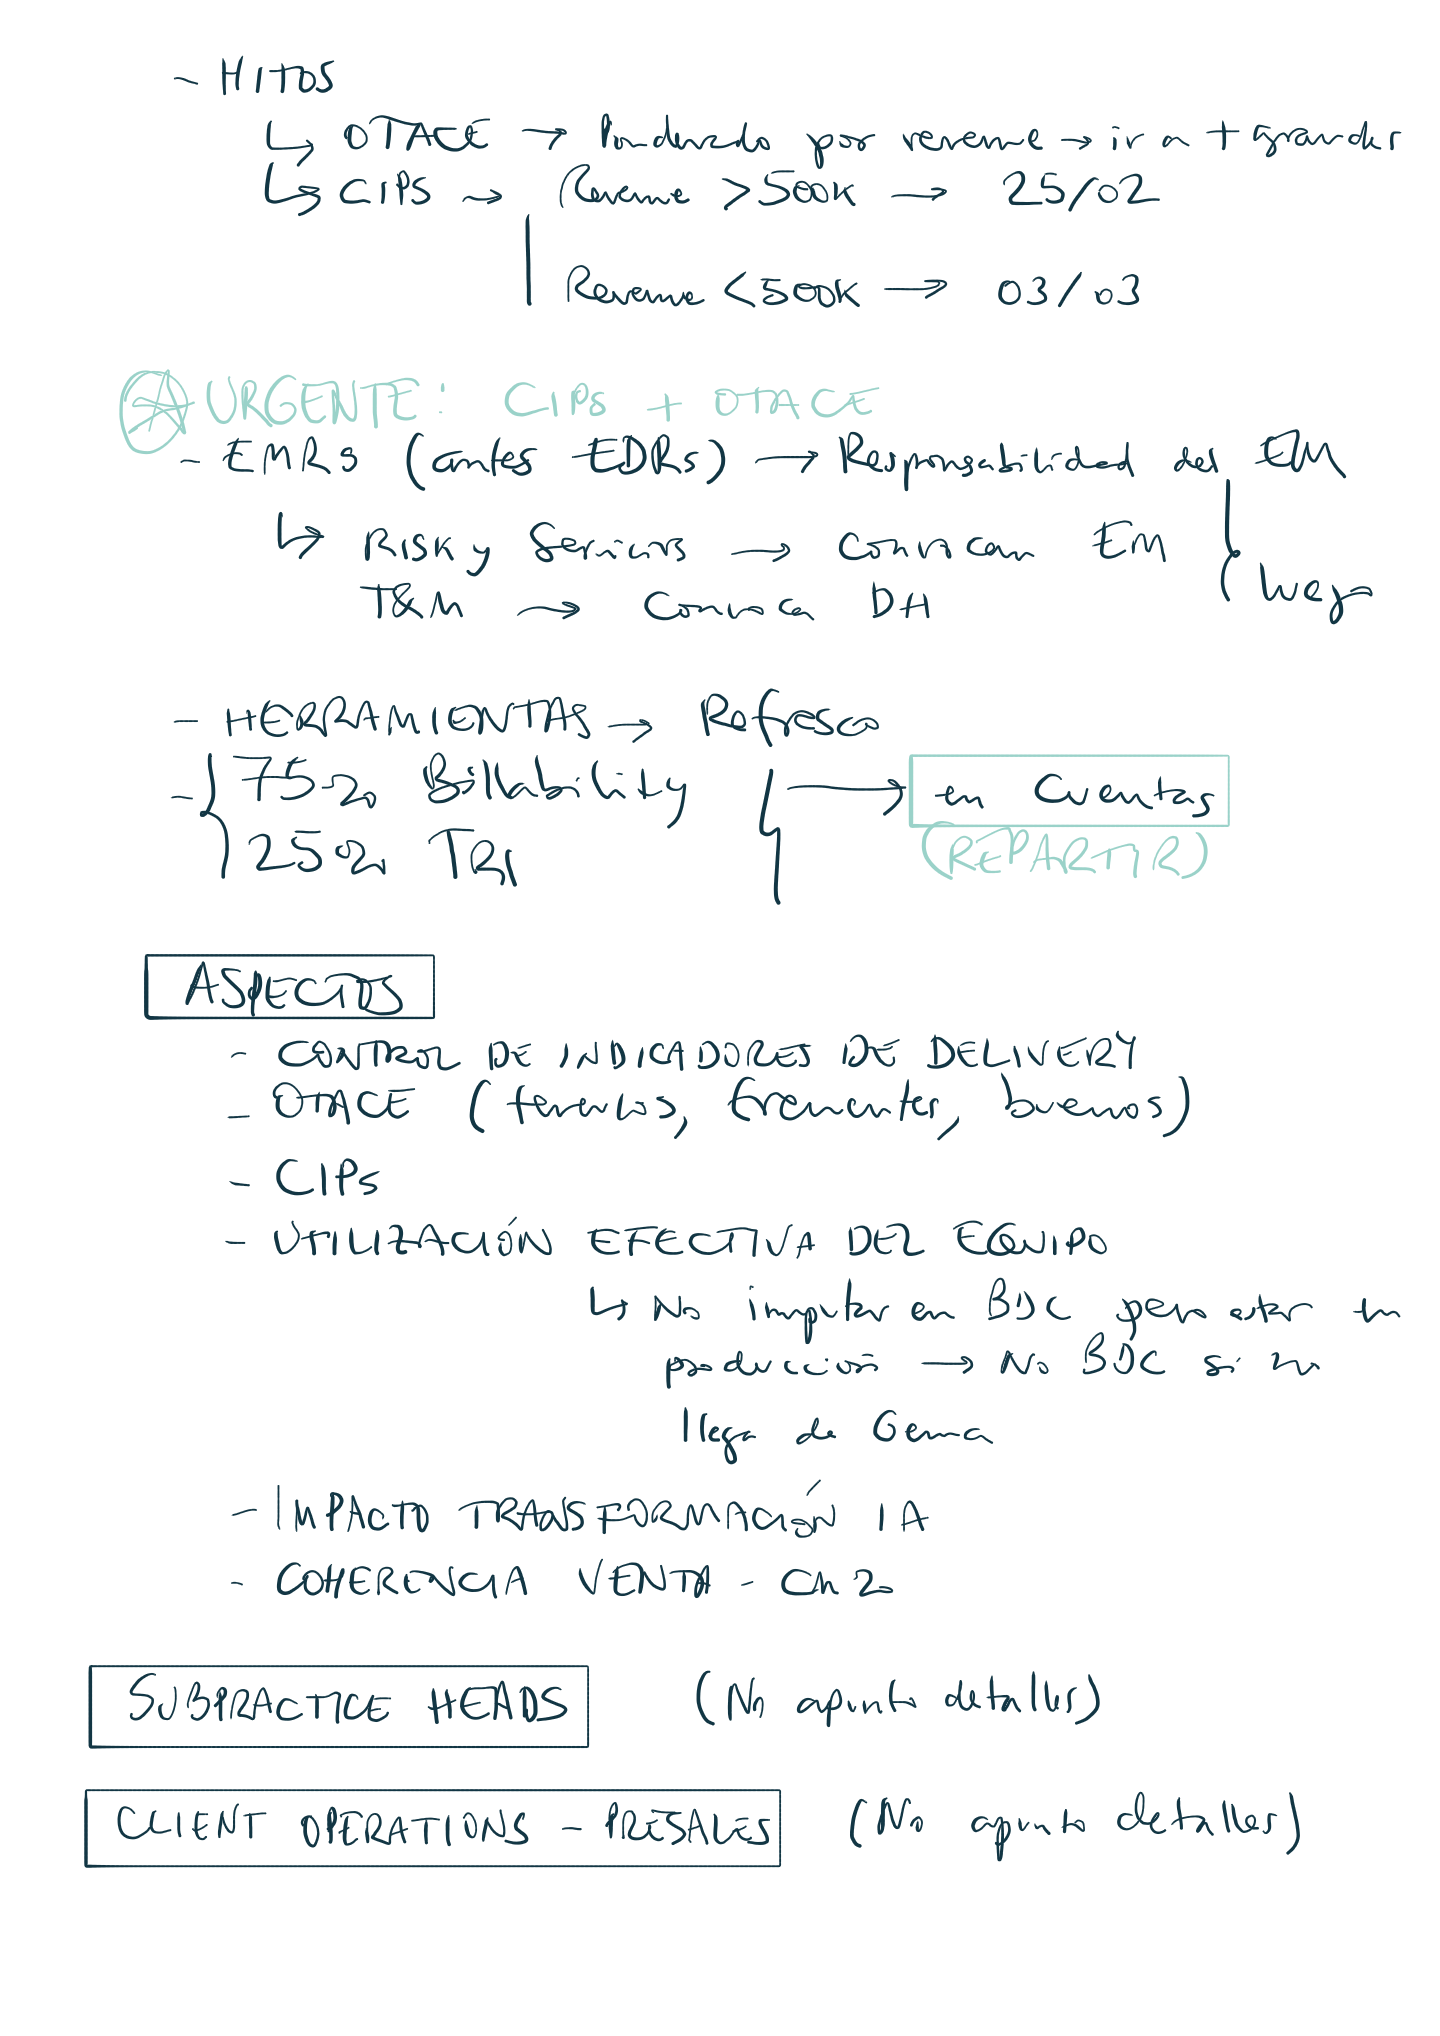 - HITOS
↳ OTACE → Ponderado por revenue → ir a + grandes
↳ CIPS → Revenue >500K → 25/02
Revenue <500K → 03/03
URGENTE: CIPs + OTACE
- EMRs (antes EDRs) → Responsabilidad del EM
↳ RISK y Servicios → Convocan EM
luego
T&M → Convoca DH
- HERRAMIENTAS → Refresco
- { 75% Billability → en Cuentas
25% TRI (REPARTIR)
ASPECTOS
- CONTROL DE INDICADORES DE DELIVERY
- OTACE (tenerlos, frecuentes, buenos)
- CIPs
- UTILIZACIÓN EFECTIVA DEL EQUIPO
↳ No imputar en BDC pero estar en
producción → No BDC si no
llega de Gema
- IMPACTO TRANSFORMACIÓN IA
- COHERENCIA VENTA -
SUBPRACTICE HEADS (No apunto detalles)
CLIENT OPERATIONS - PRESALES (No apunto detalles)